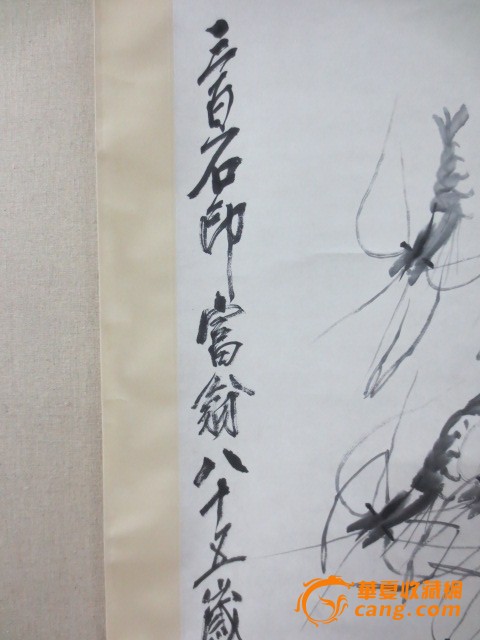 三百石印富翁八十五歲
華夏收藏網
cang.com